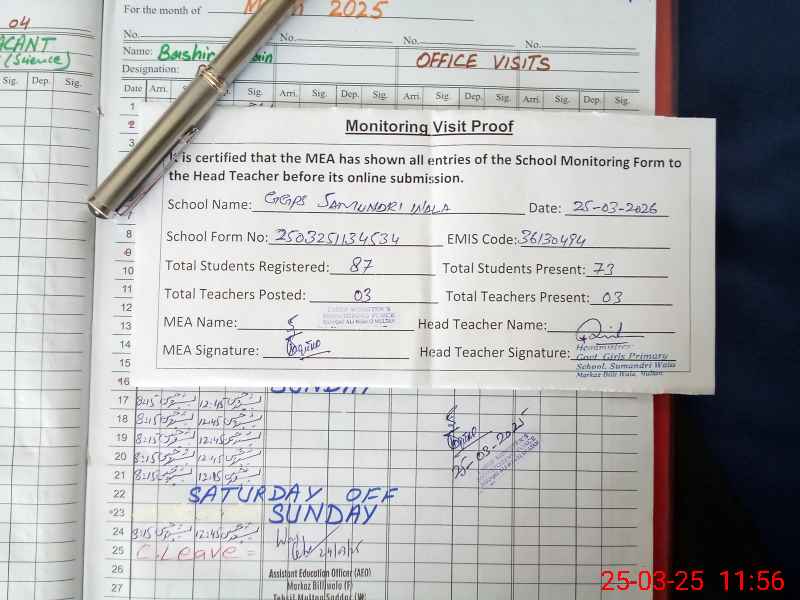 04
ACANT
(Science)
Sig. Dep. Sig.
For the month of 2025
No. No. No. No.
Name: Bashir
Designation:
OFFICE VISITS
Date Arri. Sig. Arri. Sig. Dep. Sig. Arri. Dep. Sig. Arri. Dep. Sig.
1
2
3
Monitoring Visit Proof
It is certified that the MEA has shown all entries of the School Monitoring Form to
the Head Teacher before its online submission.
School Name: GGPS SAMUNDRI WALA Date: 25-03-2026
School Form No: 2503251134534 EMIS Code: 36130494
Total Students Registered: 87 Total Students Present: 73
Total Teachers Posted: 03 Total Teachers Present: 03
MEA Name: Head Teacher Name:
MEA Signature: Head Teacher Signature:
Headmistress
Govt. Girls Primary
School, Sumandri Wala
Markaz Billi Wala, Multan.
8
9
10
11
12
13
14
15
16 SUNDAY
17 8:15 12:45
18 8:15 12:45
19 8:15 12:45
20 8:15 12:45
21 8:15 12:45
25-03-2025
22 SATURDAY OFF
23 SUNDAY
24 8:15 12:45
25 C.Leave =
24/03/25
26 Assistant Education Officer (AEO)
Markaz Billiwala (F)
27 Tehsil Multan Saddar (W)
25-03-25 11:56